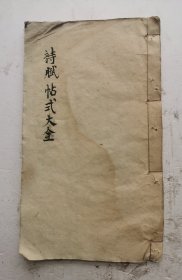 詩賦帖式大全